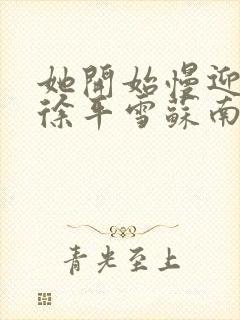 她開始慢迎
徐平雪蘇南
青光至上